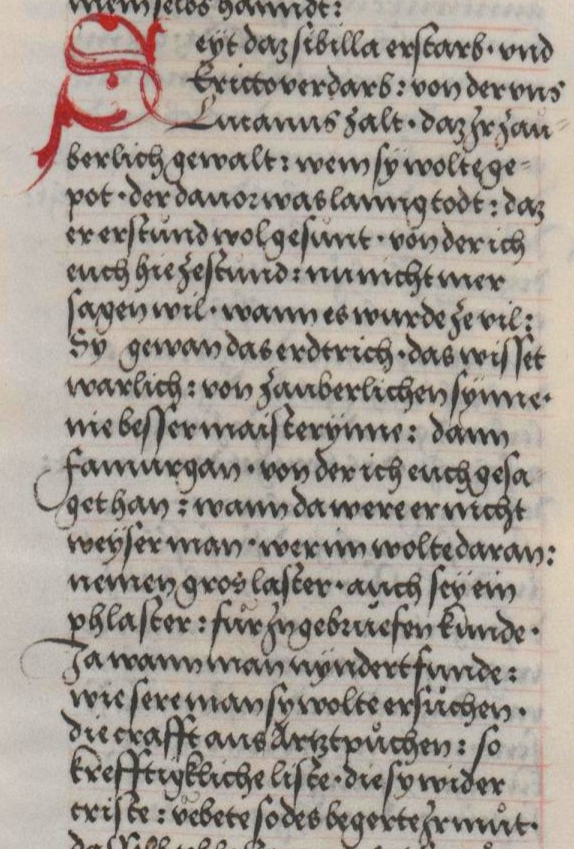 mem selbs hanndt:
Seyt daz sibilla erstarb · vnd
Ericto verdarb : von der vns
Lucanus zalt · daz Ir zau-
berlich gewalt : wem sy wolte ge-
pot · der dauor was lanng todt : daz
er erstuond wol gesunt · von der ich
euch hie zestund : nu nicht mer
sagen wil · wann es wurde ze vil :
Sy gewan das erdtrich · das wisset
warlich : von zauberlichen synne ·
nie besser maisterynne : dann
Famurgan · von der ich euch gesa
get han : wann da were er nicht
weyser man · wer im wolte daran :
nemen gros laster · auch sey ein
phlaster : für In gebruefen kunde ·
Ja wann man nyndert funde :
wie sere man sy wolte ersůchen ·
die crafft aus Artztpůchen : so
krefftigkliche liste · die sy wider
criste : vebete so des begerte Ir můt ·